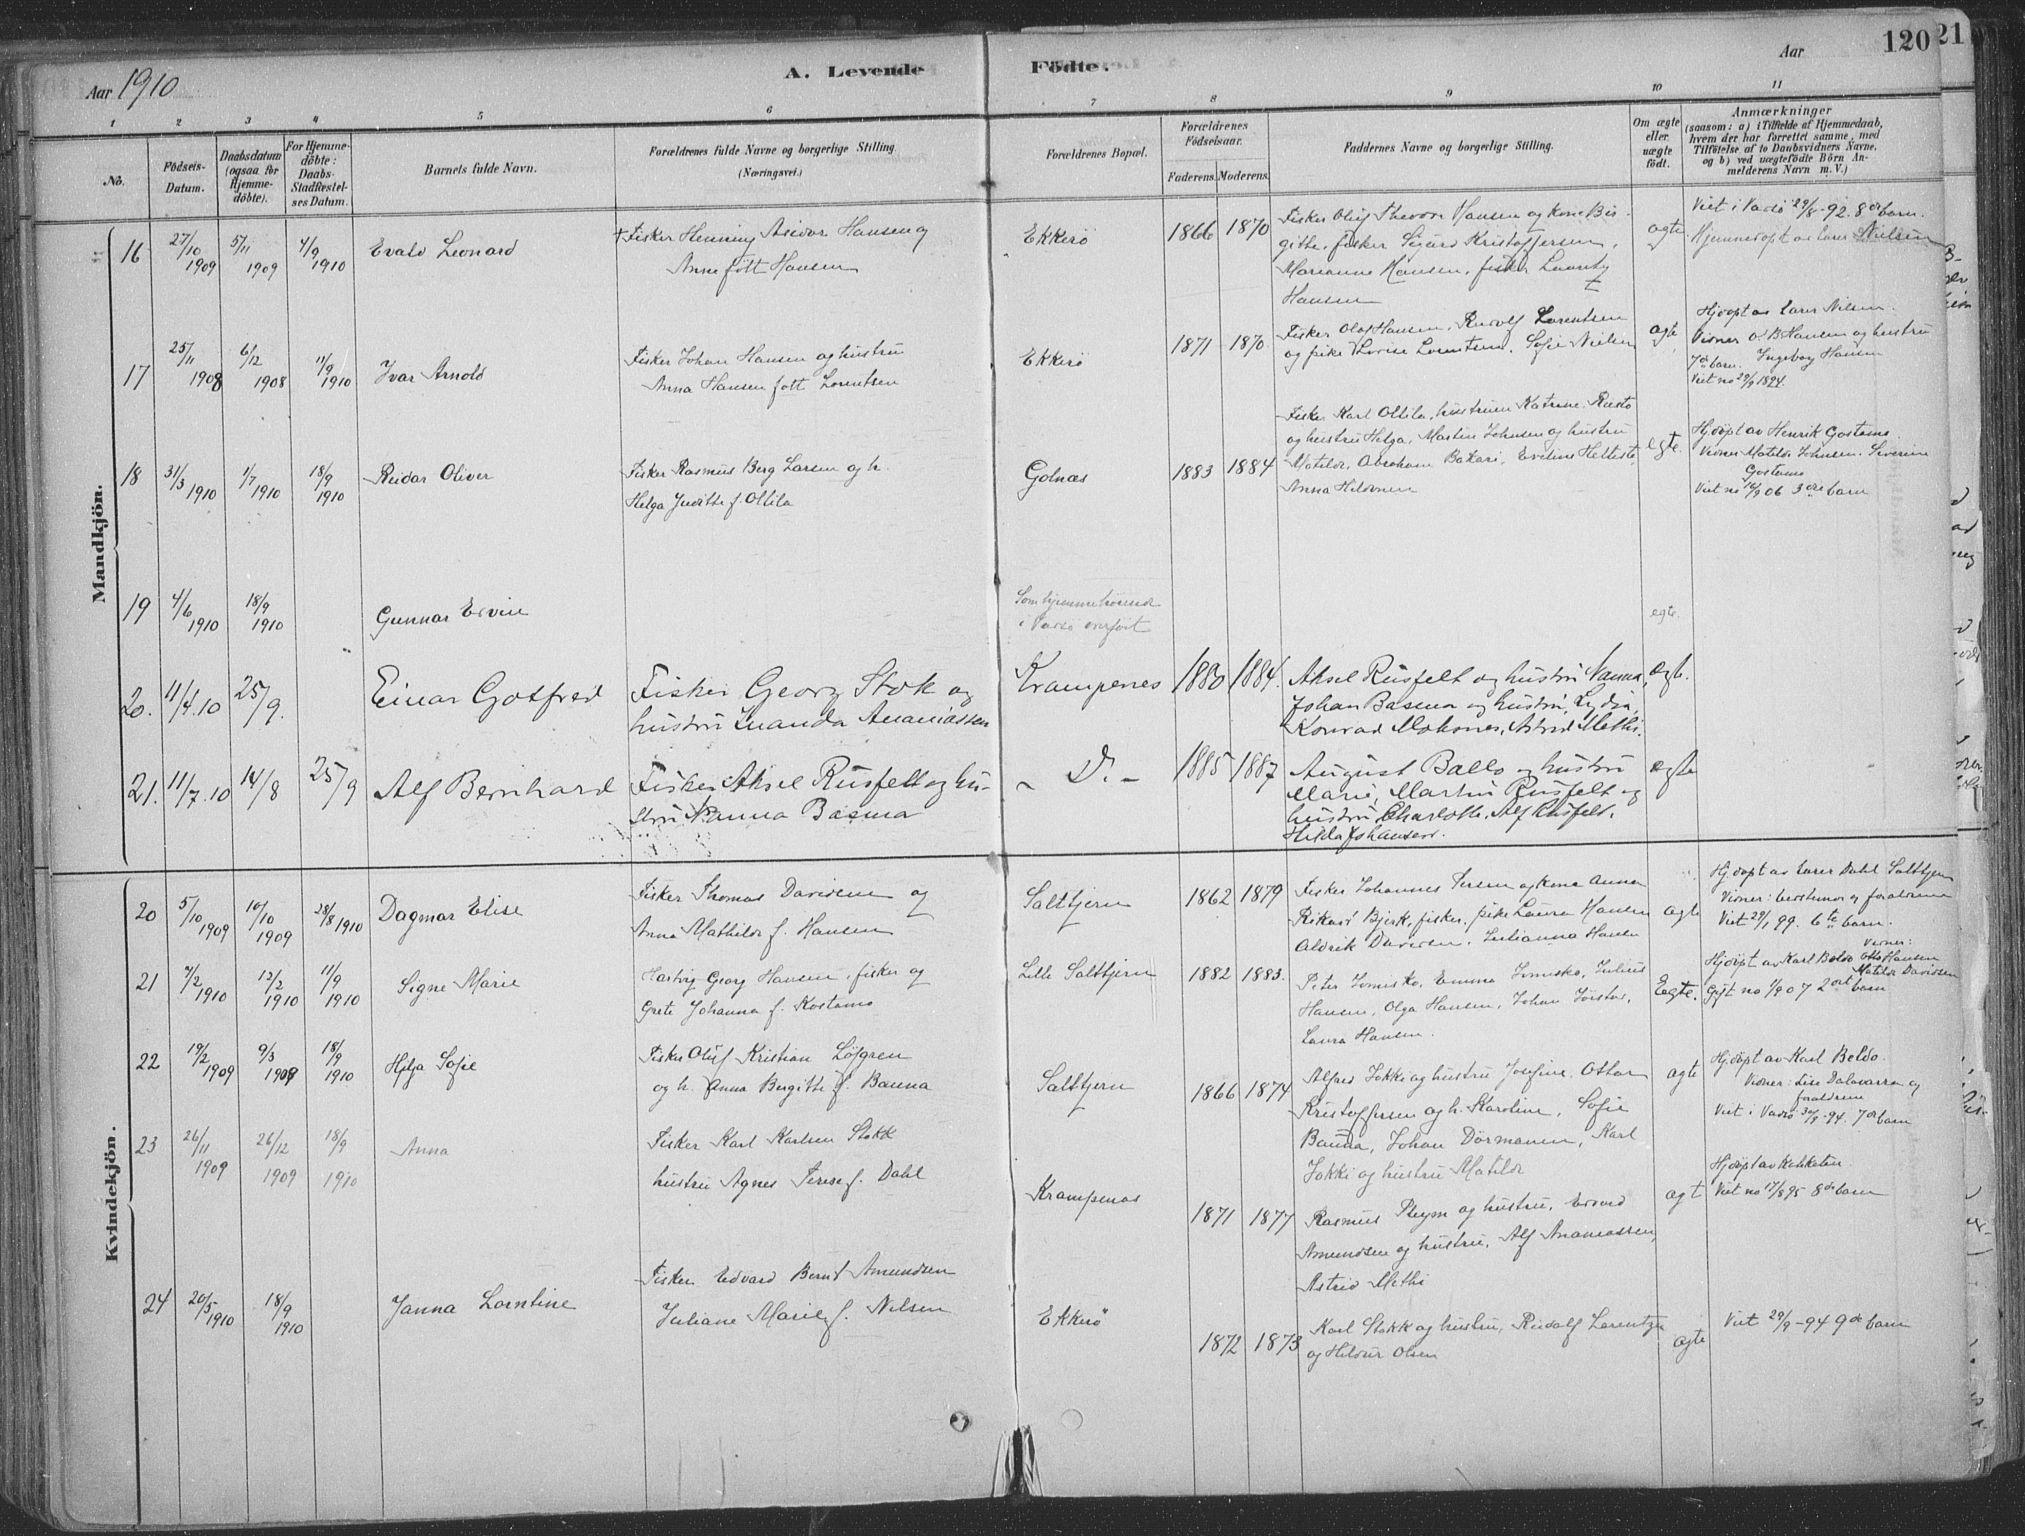 Aar 1910
A. Levende Födte.
Aar
120
21
1 2 3 4 5 6 7 8 9 10 11
No.
Födsels-
Datum.
Daabsdatum
(ogsaa for
Hjemme-
döbte).
For Hjemme-
döbte:
Daabs-
Stadfæstel-
ses Datum.
Barnets fulde Navn.
Forældrenes fulde Navne og borgerlige Stilling
(Næringsvei.)
Forældrenes Bopæl.
Forældrenes
Födselsaar.
Faderens. Moderens.
Faddernes Navne og borgerlige Stilling.
Om ægte
eller
uægte
födt.
Anmærkninger
(saasom: a) i Tilfælde af Hjemmedaab,
hvem der har forrettet samme, med
Tilföielse af to Daabsvidners Navne,
og b) ved uægtefödte Börn An-
melderens Navn m. V.)
Mandkjön.
16 27/10 1909 5/11 1909 4/9 1910 Evald Leonard
Fisker Henning Asidor Hansen og
Anne født Hansen
Ekkerö 1866 1870
Fisker Oluf Theodor Hansen og kone Bir-
gitte, fisker Sigurd Kristoffersen,
Marianne Hansen, fisker Lauritz
Hansen
ægte
Viet i Vadsö 29/8-92. 8de barn.
Hjemmedöpt av Lærer Nielsen
17 25/11 1908 6/12 1908 11/9 1910 Ivar Arnold
Fisker Johan Hansen og hustru
Anna Hansen født Lorentsen
Ekkerö 1871 1870
Fisker Olaf Hansen, Rudolf Lorentsen
og pike Lovise Lorentsen. Sofie Nielsen
ægte
Hjdöpt av Lærer Nilsen.
Vidner O. B. Hansen og hustru
7de barn. Ingeborg Hansen
Viet no 29/9 1894.
18 31/3 1910 1/7 1910 18/9 1910 Reidar Oliver
Fisker Rasmus Berg Larsen og h.
Helga Juditte f. Ollila
Golnæs 1883 1884
Fisker Karl Ollila, hustruen Katrine. Rasto
og hustru Helga, Martin Johnsen og hustru
Matilde, Abraham Bakari, Eveline
Anna
egte.
Hjdöpt av Henrik Gostamo
Vidner Matilde Johnsen. Severine
Gostamo
Viet no 16/9 06 3die barn
19 4/6 1910 18/9 1910 Gunnar Ervin
Som hjemmehörende
i Vadsö overført
egte.
20. 11/4.10 25/9. Einar Gotfred
Fisker Georg Stok og
hustru Wanda Ananiassen
Krampenes 1880 1884.
Aksel Rusfelt og hustru Nanna,
Johan Basma og hustru, Lydia,
Konrad Mokones, Astrid Methi.
ægte.
21. 11/7.10 14/8 25/9 Alf Bernhard
Fisker Aksel Rusfelt og hu-
stru Nanna Basma
- D. - 1885 1887
August Ballo og hustru
Marie, Martin Rusfelt og
hustru Charlotte, Alf Rusfelt,
Hilda Johansen.
ægte
Kvindekjön.
20 5/10 1909 10/10 1909 28/8 1910 Dagmar Elise
Fisker Thomas Davidsen og
Anna Mathilde f. Hansen
Saltbjern 1862 1879
Fisker Johannes Persen og kone Anna
Rikard Bjerk, fisker, pike Laura Hansen
Aldrik Davidsen, Julianna Hansen
ægte
Hjdöpt av Lærer Dahl Saltbjern
Vidner: bestemor og forældrene
Viet 29/1 99. 6te barn.
21 7/2 1910 13/2 1910 11/9 1910 Signe Marie
Hartvig Georg Hansen, fisker og
Grete Johanna f. Kostamo
Lille Saltbjern 1882 1883.
Peter, Emma, Julius
Hansen, Olga Hansen, Johan,
Laura Hansen.
Egte.
Hjdöpt av Karl Beldo Vidner: Otto Hansen
Matilde Davidsen
Gift no 1/9 07 2det barn
22 19/2 1909 9/3 1909 18/9 1910 Helga Sofie
Fisker Oluf Kristian Löfgren
og h. Anna Bergitte f. Banna
Saltbjern 1866 1874
Alfred Jokki og hustru Josefine, Ottar
Kristoffersen og h. Karoline, Sofie
Banna, Johan Dörmanen, Karl
Jokki og hustru Matilde
ægte
Hjdöpt av Karl Beldo.
Vidner: Lise Dalavarra og
forældrene
Viet i Vadsö 30/9-94. 7de barn
23 26/11 1909 26/12 1909 18/9 1910 Anna
Fisker Karl Karlsen Stokk
hustru Agnes Terese f. Dahl
Krampenæs 1871 1877
Rasmus Pleym og hustru, Edvard
Amundsen og hustru, Alf Ananiassen,
Astrid Methi
ægt
Hjdöpt av Kateketen.
Viet no 17/8 95 8de barn
24 20/5 1910 18/9 1910 Janna Lorntine
Fisker Edvard Bernt Amundsen
Juliane Marie f. Nilsen
Ekkerö 1872 1873
Karl Stokk og hustru, Rudolf Lorentzen
og Hildur Olsen
ægte
Viet 29/9-94 9de barn